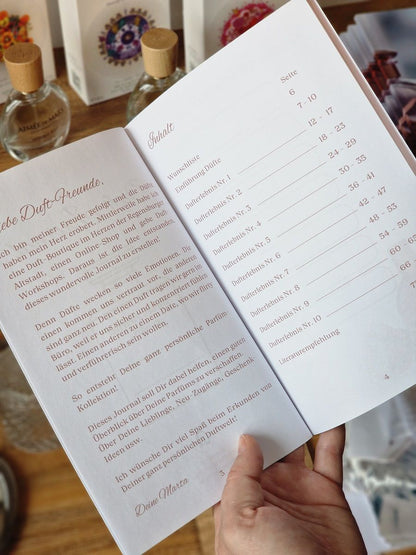 AIMÉE DE MARS
Liebe Duft-Freunde,
ich bin meiner Freude gefolgt und die Düfte
haben mein Herz erobert. Mittlerweile habe ich
eine Duft-Boutique im Herzen der Regensburger
Altstadt, einen Online Shop und gebe Duft-
Workshops. Daraus ist die Idee entstanden,
dieses wundervolle Journal zu erstellen!
Denn Düfte wecken so viele Emotionen. Die
einen kommen uns vertraut vor, die anderen
sind ganz neu. Den einen Duft tragen wir gern im
Büro, weil er uns sicher und konzentriert fühlen
lässt. Einen anderen zu einem Date, wo wir flirty
und verführerisch sein wollen.
So entsteht Deine ganz persönliche Parfüm
Kollektion!
Dieses Journal soll Dir dabei helfen, einen guten
Überblick über Deine Parfüms zu verschaffen.
Über Deine Lieblinge, Neu-Zugänge, Geschenk
Ideen usw.
Ich wünsche Dir viel Spaß beim Erkunden von
Deiner ganz persönlichen Duftwelt!
Deine Marza
3
Inhalt
Seite
Wunschliste 6
Einführung Düfte 7 - 10
Dufterlebnis Nr. 1 12 - 17
Dufterlebnis Nr. 2 18 - 23
Dufterlebnis Nr. 3 24 - 29
Dufterlebnis Nr. 4 30 - 35
Dufterlebnis Nr. 5 36 - 41
Dufterlebnis Nr. 6 42 - 47
Dufterlebnis Nr. 7 48 - 53
Dufterlebnis Nr. 8 54 - 59
Dufterlebnis Nr. 9 60
Dufterlebnis Nr. 10 66
Literaturempfehlung
4